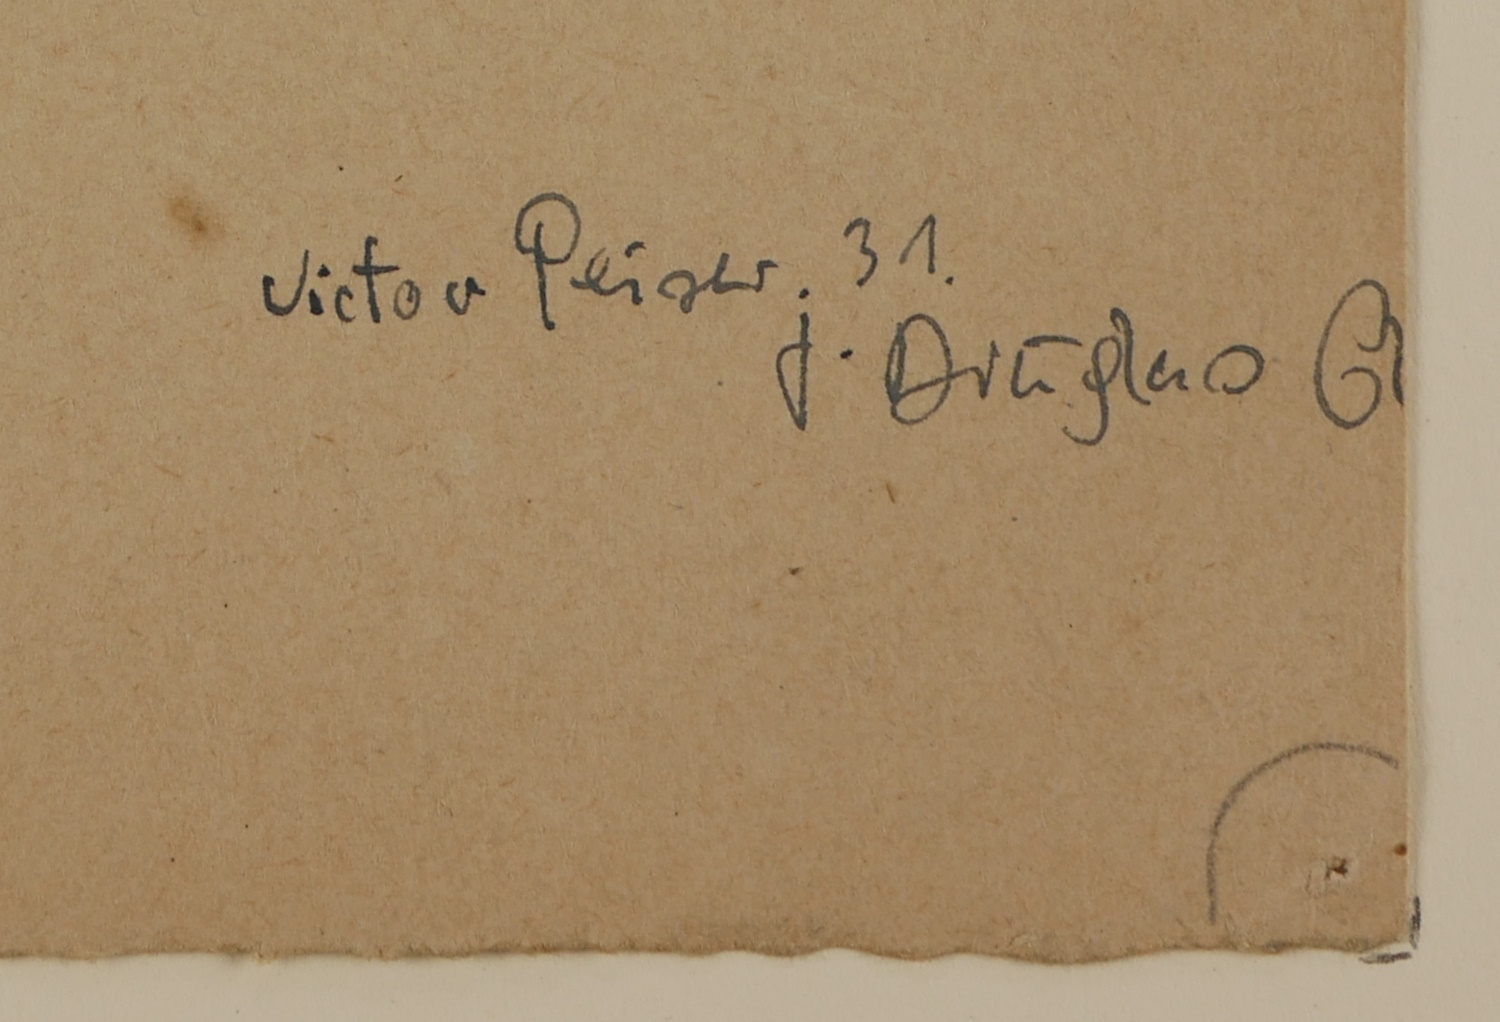 Victor Peiser. 31.
J. Douglas Gl